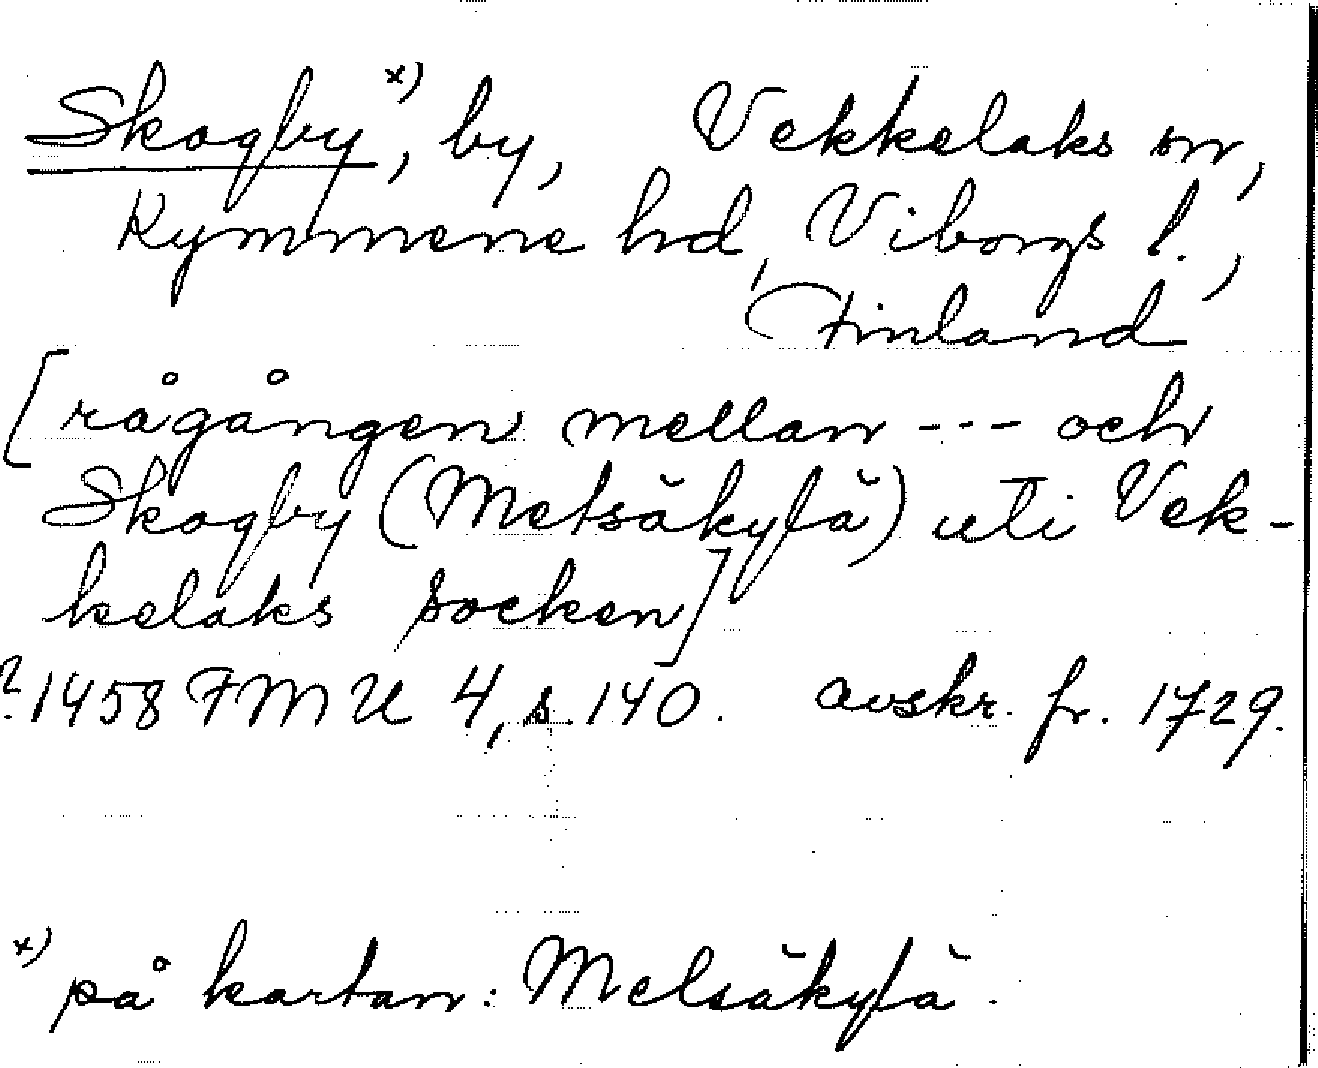 Skogby *), by, Vekkelaks sn,
Kymmene hd, Viborgs l.,
Finland
[rågången mellan --- och
Skogby (Metsäkylä) uti Vek-
kelaks socken]
?1458 FMU 4, s. 140. avskr. fr. 1729.
*) på kartan: Metsäkylä.